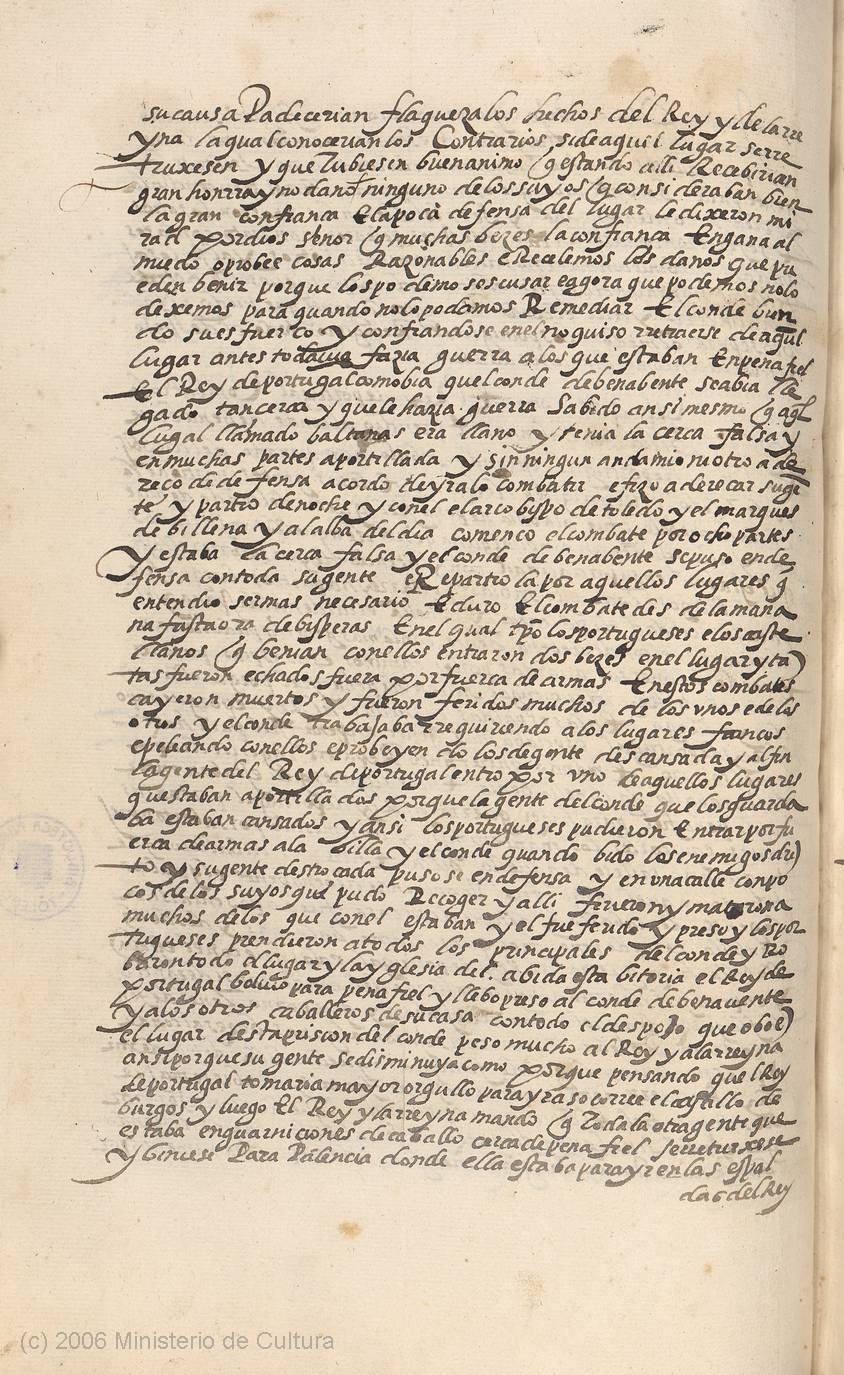 su causa Padecerian flaqueza los hechos del Rey y de la rre
yna la qual conocerian los Contrarios si de aquel lugar se rre
truxesen y que tubiesen buen animo q estando alli Recebirian
gran honrra y no daño ninguno de los suyos q consideraban bien
la gran confiança E la poca defensa del lugar le dixeron mi
rad por dios señor q muchas bezes la confiança Engaña al
miedo o probee cosas Razonables E Recelemos los danos que pu
eden benir porque los podemos escusar e agora que podemos no lo
dexemos para quando no lo podamos Remediar El conde
do su esfuerço y confiandose en el no quiso rretraerse de aquel
lugar antes todavia fazia guerra a los que estaban En penafiel
El Rey de portugal como bia quel conde de benabente se abia lle
gado tan cerca y que le hazia guerra Sabido ansi mesmo q aql
lugal llamado baltanas era llano y tenia la cerca falsa y
en muchas partes aportillada y sin ningun andamio ni otro ade
reço de defensa acordo de yralo combatir e fizo aderecar su gen
te y partio de noche y con el el arcobispo de toledo y el marques
de billena y al alba del dia començo el combate por ocho partes
y estaba la cerca falsa y el conde de benabente se puso en de
fensa con toda su gente e Repartiola por aquellos lugares q
entendio ser mas necesario E duro El combate desde la maña
na fasta ora de bisperas En el qual tpo los portugueses e los caste
llanos q benian con ellos entraron dos bezes en el lugar y ta
tas fueron echados fuera por fuerca de armas En estos combates
cayeron muertos y fueron feridos muchos de los vnos e de los
otros y el conde trabajaba rrequiriendo a los lugares flancos
e peleando con ellos e probeyendo los de gente descansada y al fin
la gente del Rey de portugal entro por vno de aquellos lugares
questaban aportillados porque la gente del conde que los guarda
ba estaban cansados y ansi los portugueses pudieron Entrar por fu
erca de armas a la billa y el conde quando bido los enemigos de
to y su gente destrocada pusose en defensa y en vna calle con po
cos de los suyos que pudo Recoger y alli firieron y mataron a
muchos de los que con el estaban y el fue ferido y preso y los por
tugueses prendieron a todos los principales del conde y Ro
baron todo el lugar y la yglesia del. abida esta bitoria el Rey de
portugal bolbio para penafiel y llebo preso al conde de benauente
y a los otros caballeros de su casa con todo el despojo que obo e
el lugar desta prision del conde peso mucho al Rey y a la rreyna
ansi porque su gente se disminuya como porque pensando quel Rey
de portugal tomaria mayor orgullo para yr a socorrer el castillo de
burgos y luego El Rey y la rreyna mando q toda la otra gente que
estaba en guarniciones de caballo cerca de penafiel se rretruxese
y biniese Para Palencia donde ella estaba para yr en las espal
das del Rey
(c) 2006 Ministerio de Cultura